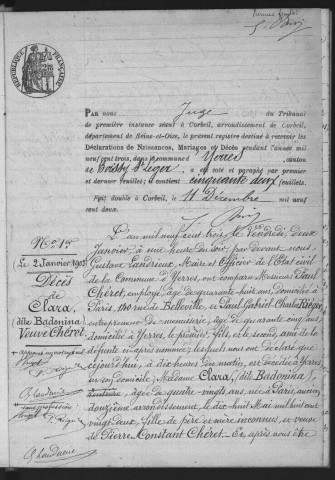 RÉPUBLIQUE FRANÇAISE
PAR nous Juge du Tribunal
de première instance séant à Corbeil, arrondissement de Corbeil,
département de Seine-et-Oise, le présent registre destiné à recevoir les
Déclarations de Naissances, Mariages et Décès pendant l'année mil
neuf cent trois, dans la commune d'Yerres canton
de Boissy St Léger, a été coté et paraphé par premier
et dernier feuillet; il contient cinquante deux feuillets.
Fait double à Corbeil, le 11 Décembre mil
neuf cent deux.
N° 1er
Le 2 Janvier 1903
Décès
de
Clara,
(dite Badonina)
Veuve Chéret.
L'an mil neuf cent trois, le Vendredi, deux
Janvier, à une heure du soir, par devant nous
Gustave Landrieu, Maire et Officier de l'État civil
de la Commune d'Yerres, ont comparu Messieurs Paul
Chéret, employé, âgé de quarante huit ans, domicilié à
Paris, rue de Belleville, et Paul Gabriel Charles
entrepreneur de menuiserie, âgé de quarante cinq ans,
domicilié à Yerres, le premier, fils, et le second, ami de la
défunte ci-après nommée; lesquels nous ont déclaré que
cejourd'hui, à dix heures du matin, est décédée à Yerres
en son domicile, Madame Clara, (dite Badonina)
âgée de quatre vingts ans, née à Paris, ancien
douzième arrondissement, le dix huit Mai mil huit cent
vingt deux, fille de père et mère inconnus, et veuve
de Pierre Constant Chéret. Et après nous être